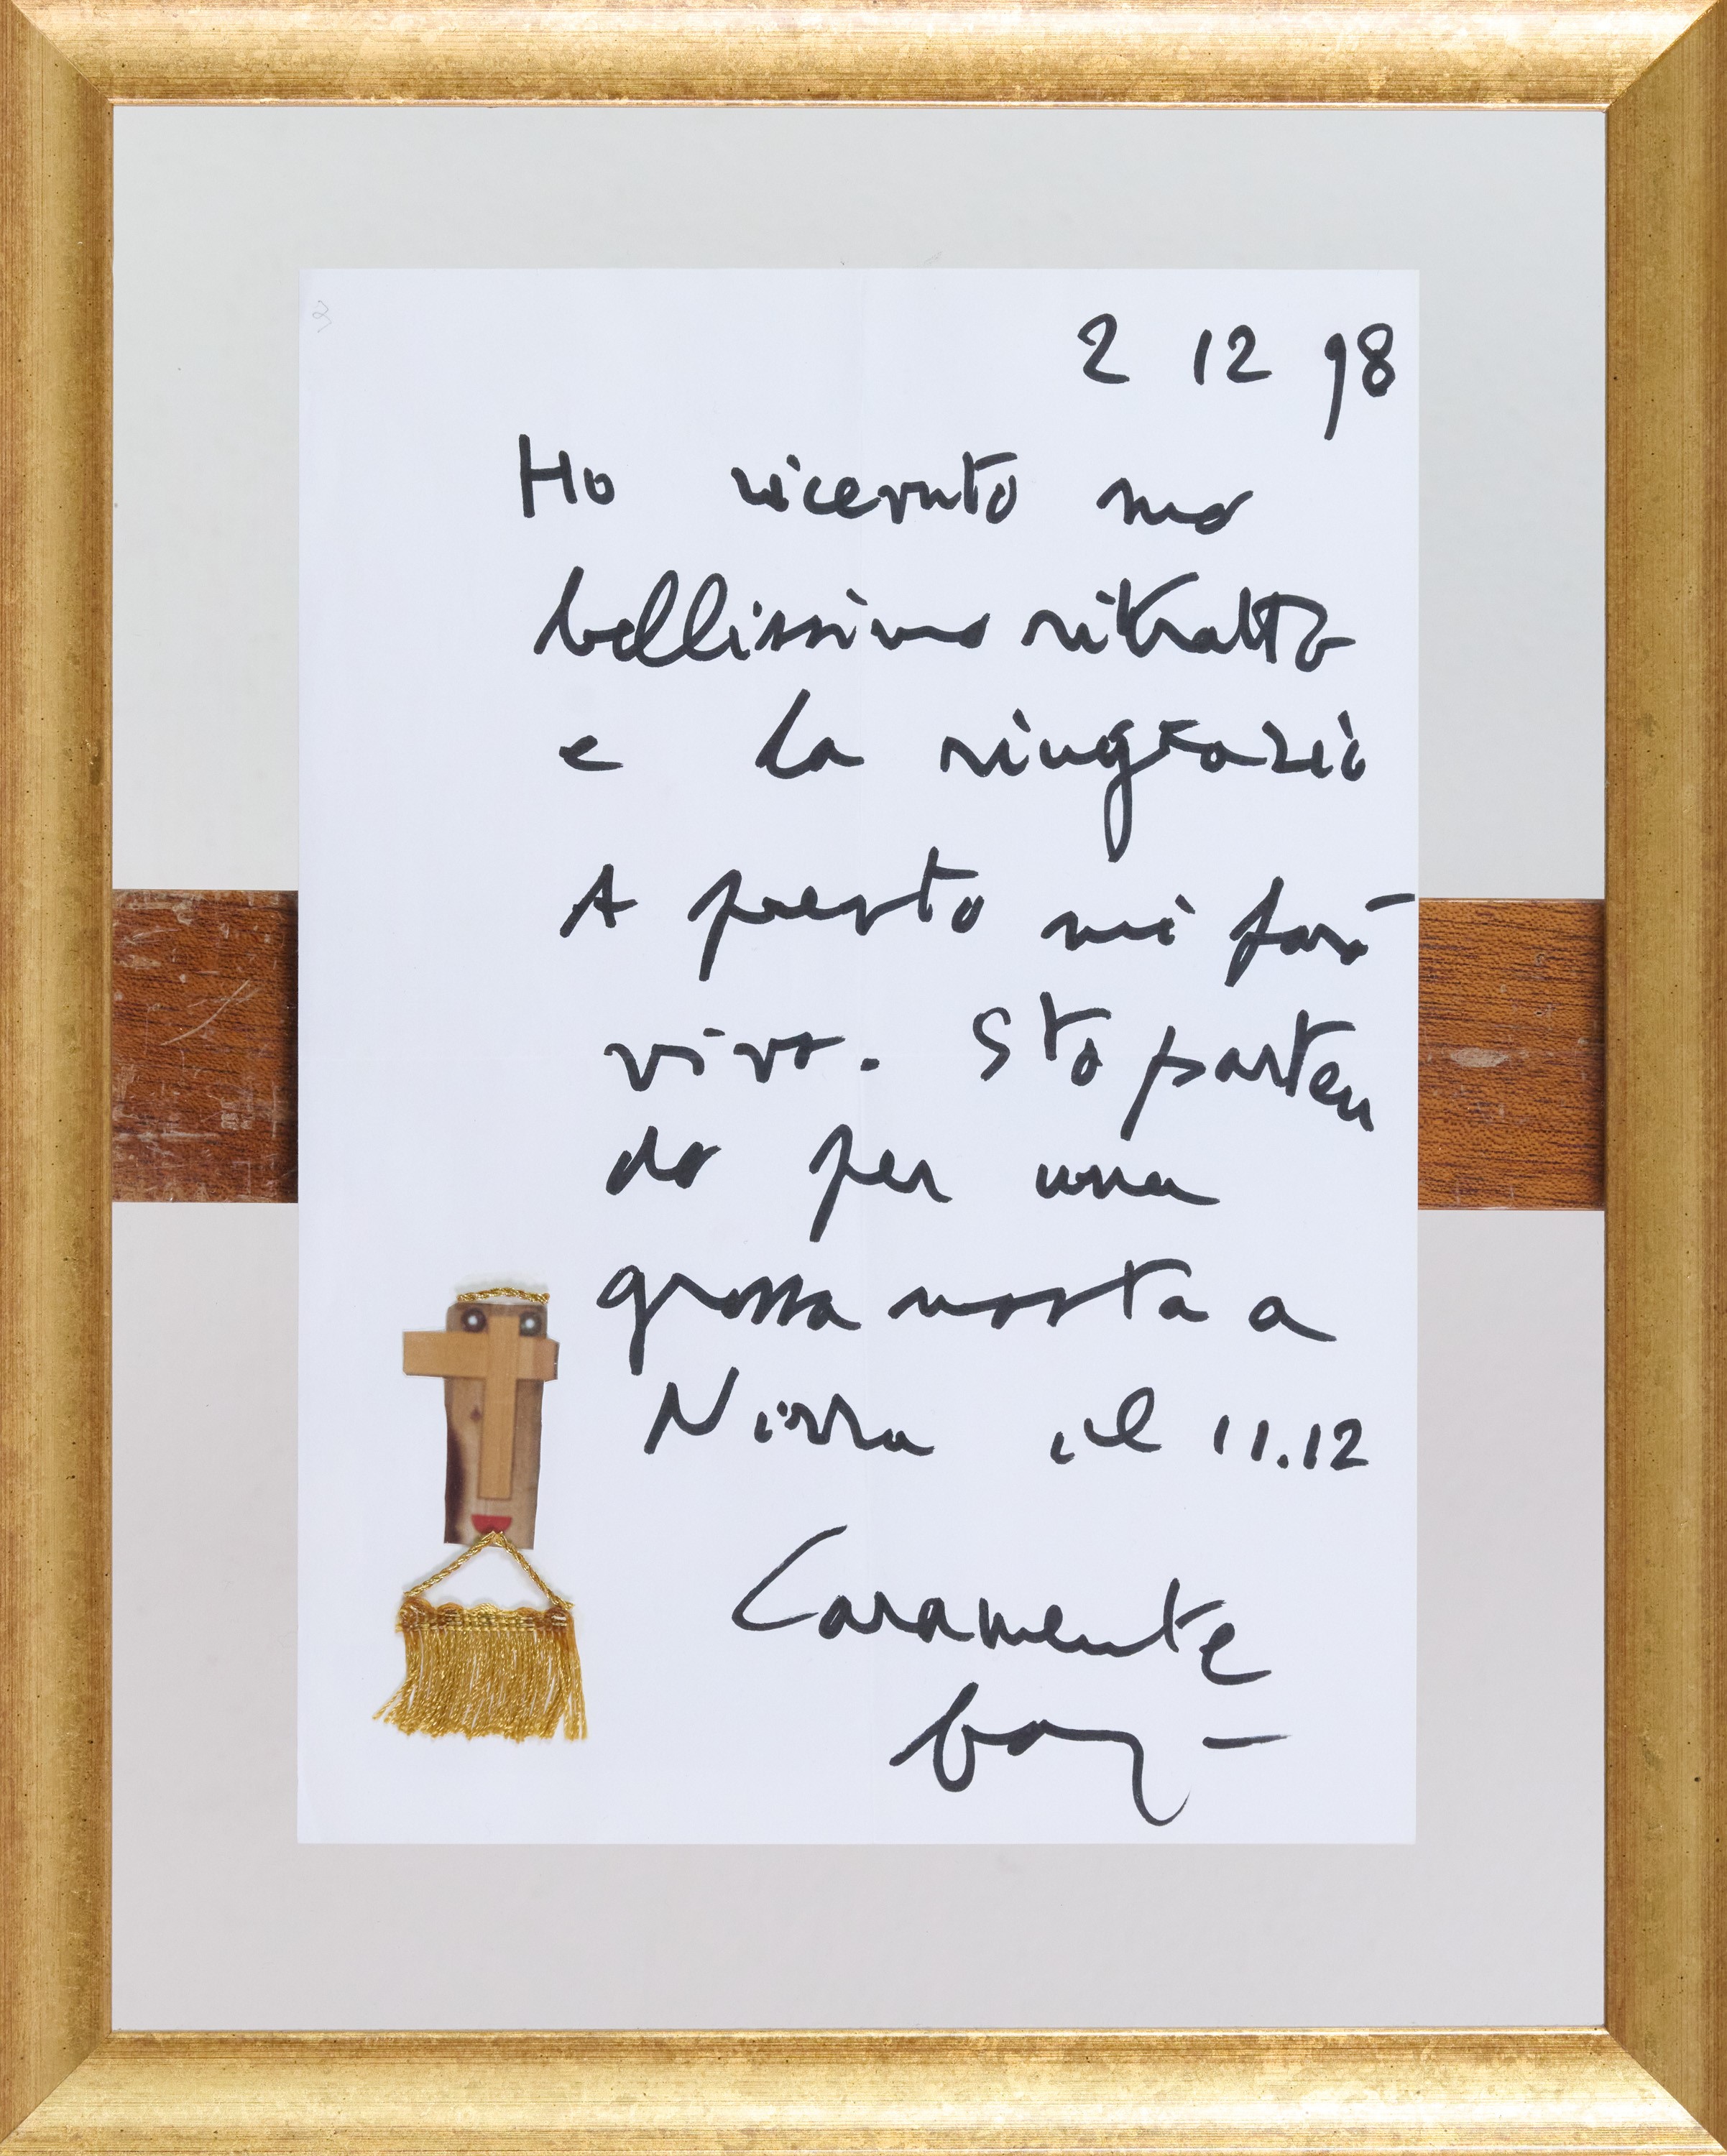 2 12 98
Ho ricevuto
bellissimo ritratto
e La ringrazio
A presto mi farò
vivo. Sto parten
do per una
grossa mostra a
Nizza il 11.12
Caramente
baj –